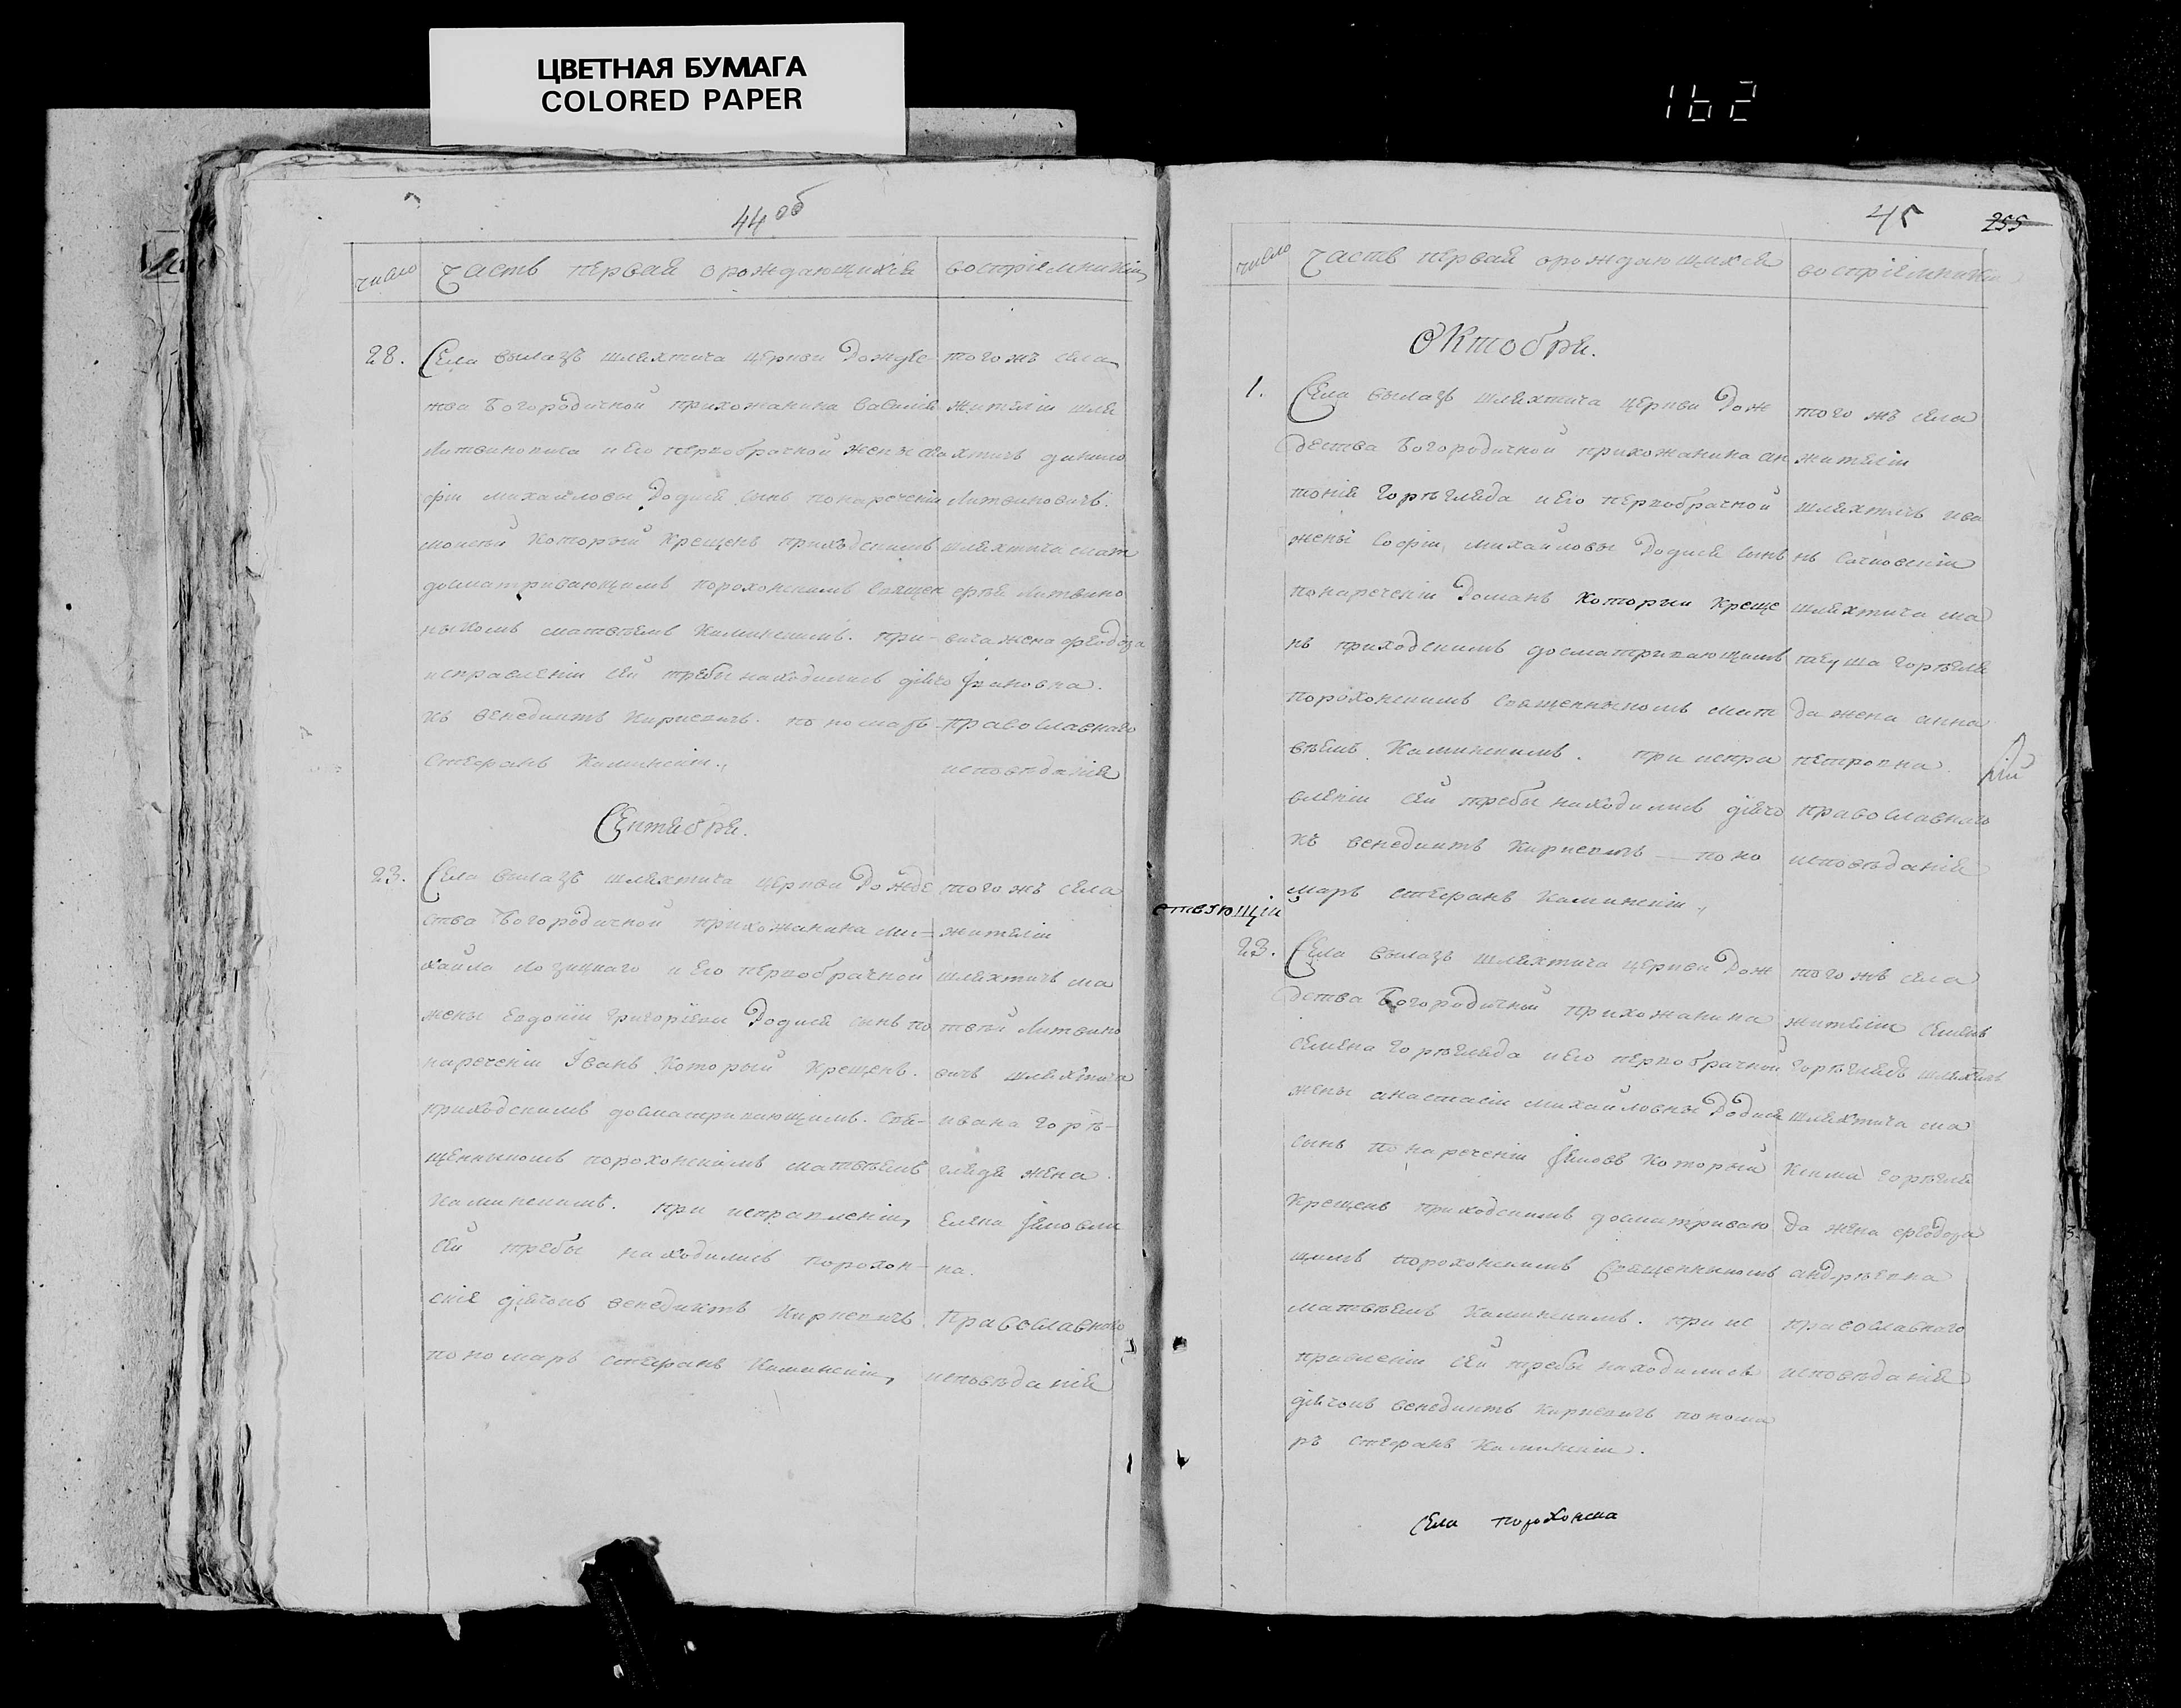 ЦВЕТНАЯ БУМАГА
COLORED PAPER
162
44 об
число
Часть первая о рождающихся
воспріемникіи
28.
Села вылазъ шляхтича церкви Рождес
тва Богородичной прихожанина Василія
Литвиновича и его первобрачной жены со
фіи михайловы Родися сынъ понареченіи
моисей который крещенъ приходскимъ
досматривающимъ порохонскимъ священ
никомъ матвѣемъ Каминскимъ. при
исправленіи сей требы находились дьячо
къ венедиктъ Кириевичъ. пономарь
стефанъ Каминскіи.
того жъ села
жителіи шля
хтичъ данило
Литвиновичъ.
шляхтича мат
фѣя Литвино
вича жена феодора
Івановна.
православнаго
исповѣданія
Сентября.
23.
Села вылазъ шляхтича церкви Рожде
ства Богородичной прихожанина ми-
хаила Лозицкаго и его первобрачной
жены Евдокіи Григорієвы Родися сынъ по
нареченіи Іванъ Который Крещенъ.
приходскимъ досматривающимъ. свя-
щенникомъ порохонскимъ матвѣемъ
Каминскимъ. при исправленіи,
сей требы находились порохон-
скіе дьячокъ венедиктъ Кириевичъ
пономарь стефанъ Каминскіи,
того жъ села
жителіи
шляхтичъ ма
твей Литвино
вичъ шляхтича
ивана Горѣ-
гляда жена.
Елена Яковли
на.
Православнаго
исповѣданія
45
255
число
Часть первая о рождающихся
воспріемникіи
Октобря.
1.
Села вылазъ шляхтича церкви Рож
дества Богородичной прихожанина ан
тонія Горѣгляда и его первобрачной
жены Софіи, михайловы Родися сынъ
понареченіи Романъ Которыи Креще
нъ приходскимъ досматривающимъ
порохонскимъ священникомъ мат
вѣемъ Каминскимъ. при испра
вленіи сей требы находились дьячо
къ венедиктъ Кириевичъ — поно
марь стефанъ Каминскіи,
того жъ села
жителіи
шляхтичъ ива
нъ
шляхтича ма
Горѣгля
да жена анна
петровна
православнаго
исповѣданія
23.
Села вылазъ шляхтича церкви Рож
дства Богородичной прихожанина
семена Горѣгляда и его первобрачной
жены анастасіи михайловны Родися
сынъ по нареченіи Яковъ Которыи
Крещенъ приходскимъ досматриваю
щимъ порохонскимъ священникомъ
матвѣемъ Каминскимъ. при ис
правленіи сей требы находились
дьячокъ венедиктъ Кириевичъ понома
ръ стефанъ Каминскіи.
того жъ села
жителіи семенъ
Горѣглядъ шляхтичъ
шляхтича ма
ксима Горѣгля
да жена феодора
андрѣевна
православнаго
исповѣданія
Села порохонска